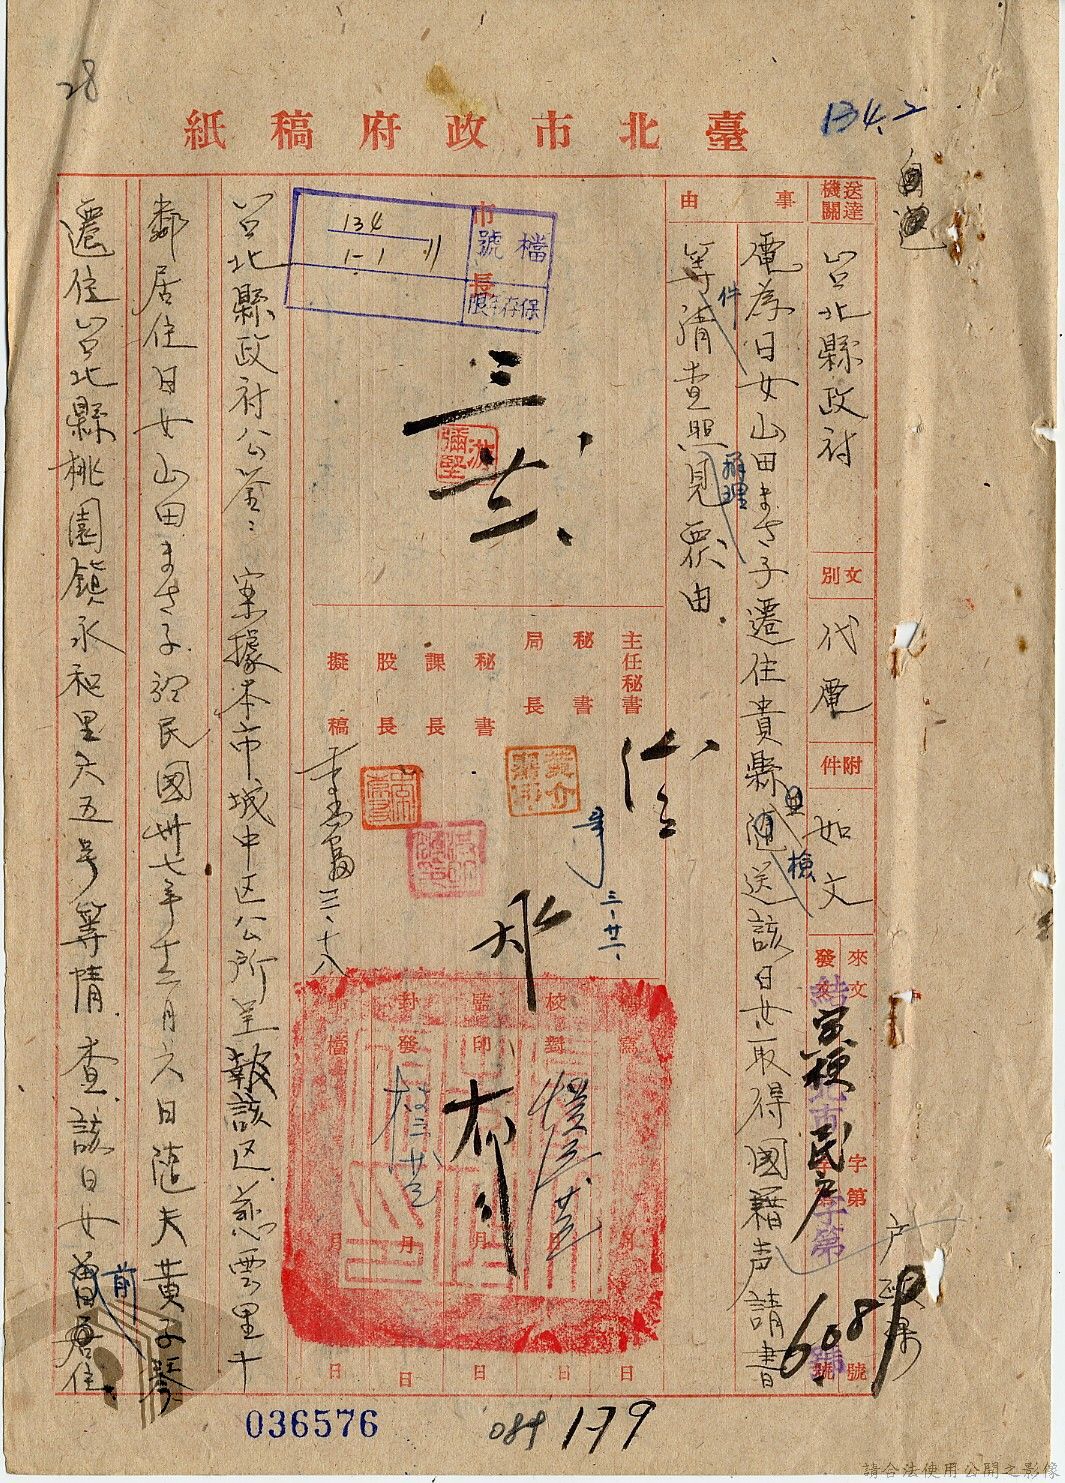 28
134.2
臺北市政府稿紙
送達機關
台北縣政府
文別
代電
附件
如文
來文
發文
字第
號
寅梗
民戶
6089
事由
電為日女山田まさ子遷住貴縣
送該日女取得國籍声請書
等件請查照辦理見覆由
市長
檔號
134
1-1
11
保存年限
三
廿二
主任秘書
秘書
局長
秘書
課長
股長
擬稿
三、廿二、
三、十八
校對
監印
封發
歸檔
月
日
台北縣政府公鑒：案據本市城中区公所呈報該区慈雲里十
鄰居住日女山田まさ子於民國卅七年十二月六日隨夫黃子琴
遷住台北縣桃園鎮永和里六五号等情查該日女前居住
036576
084
179
請合法使用公開之影像